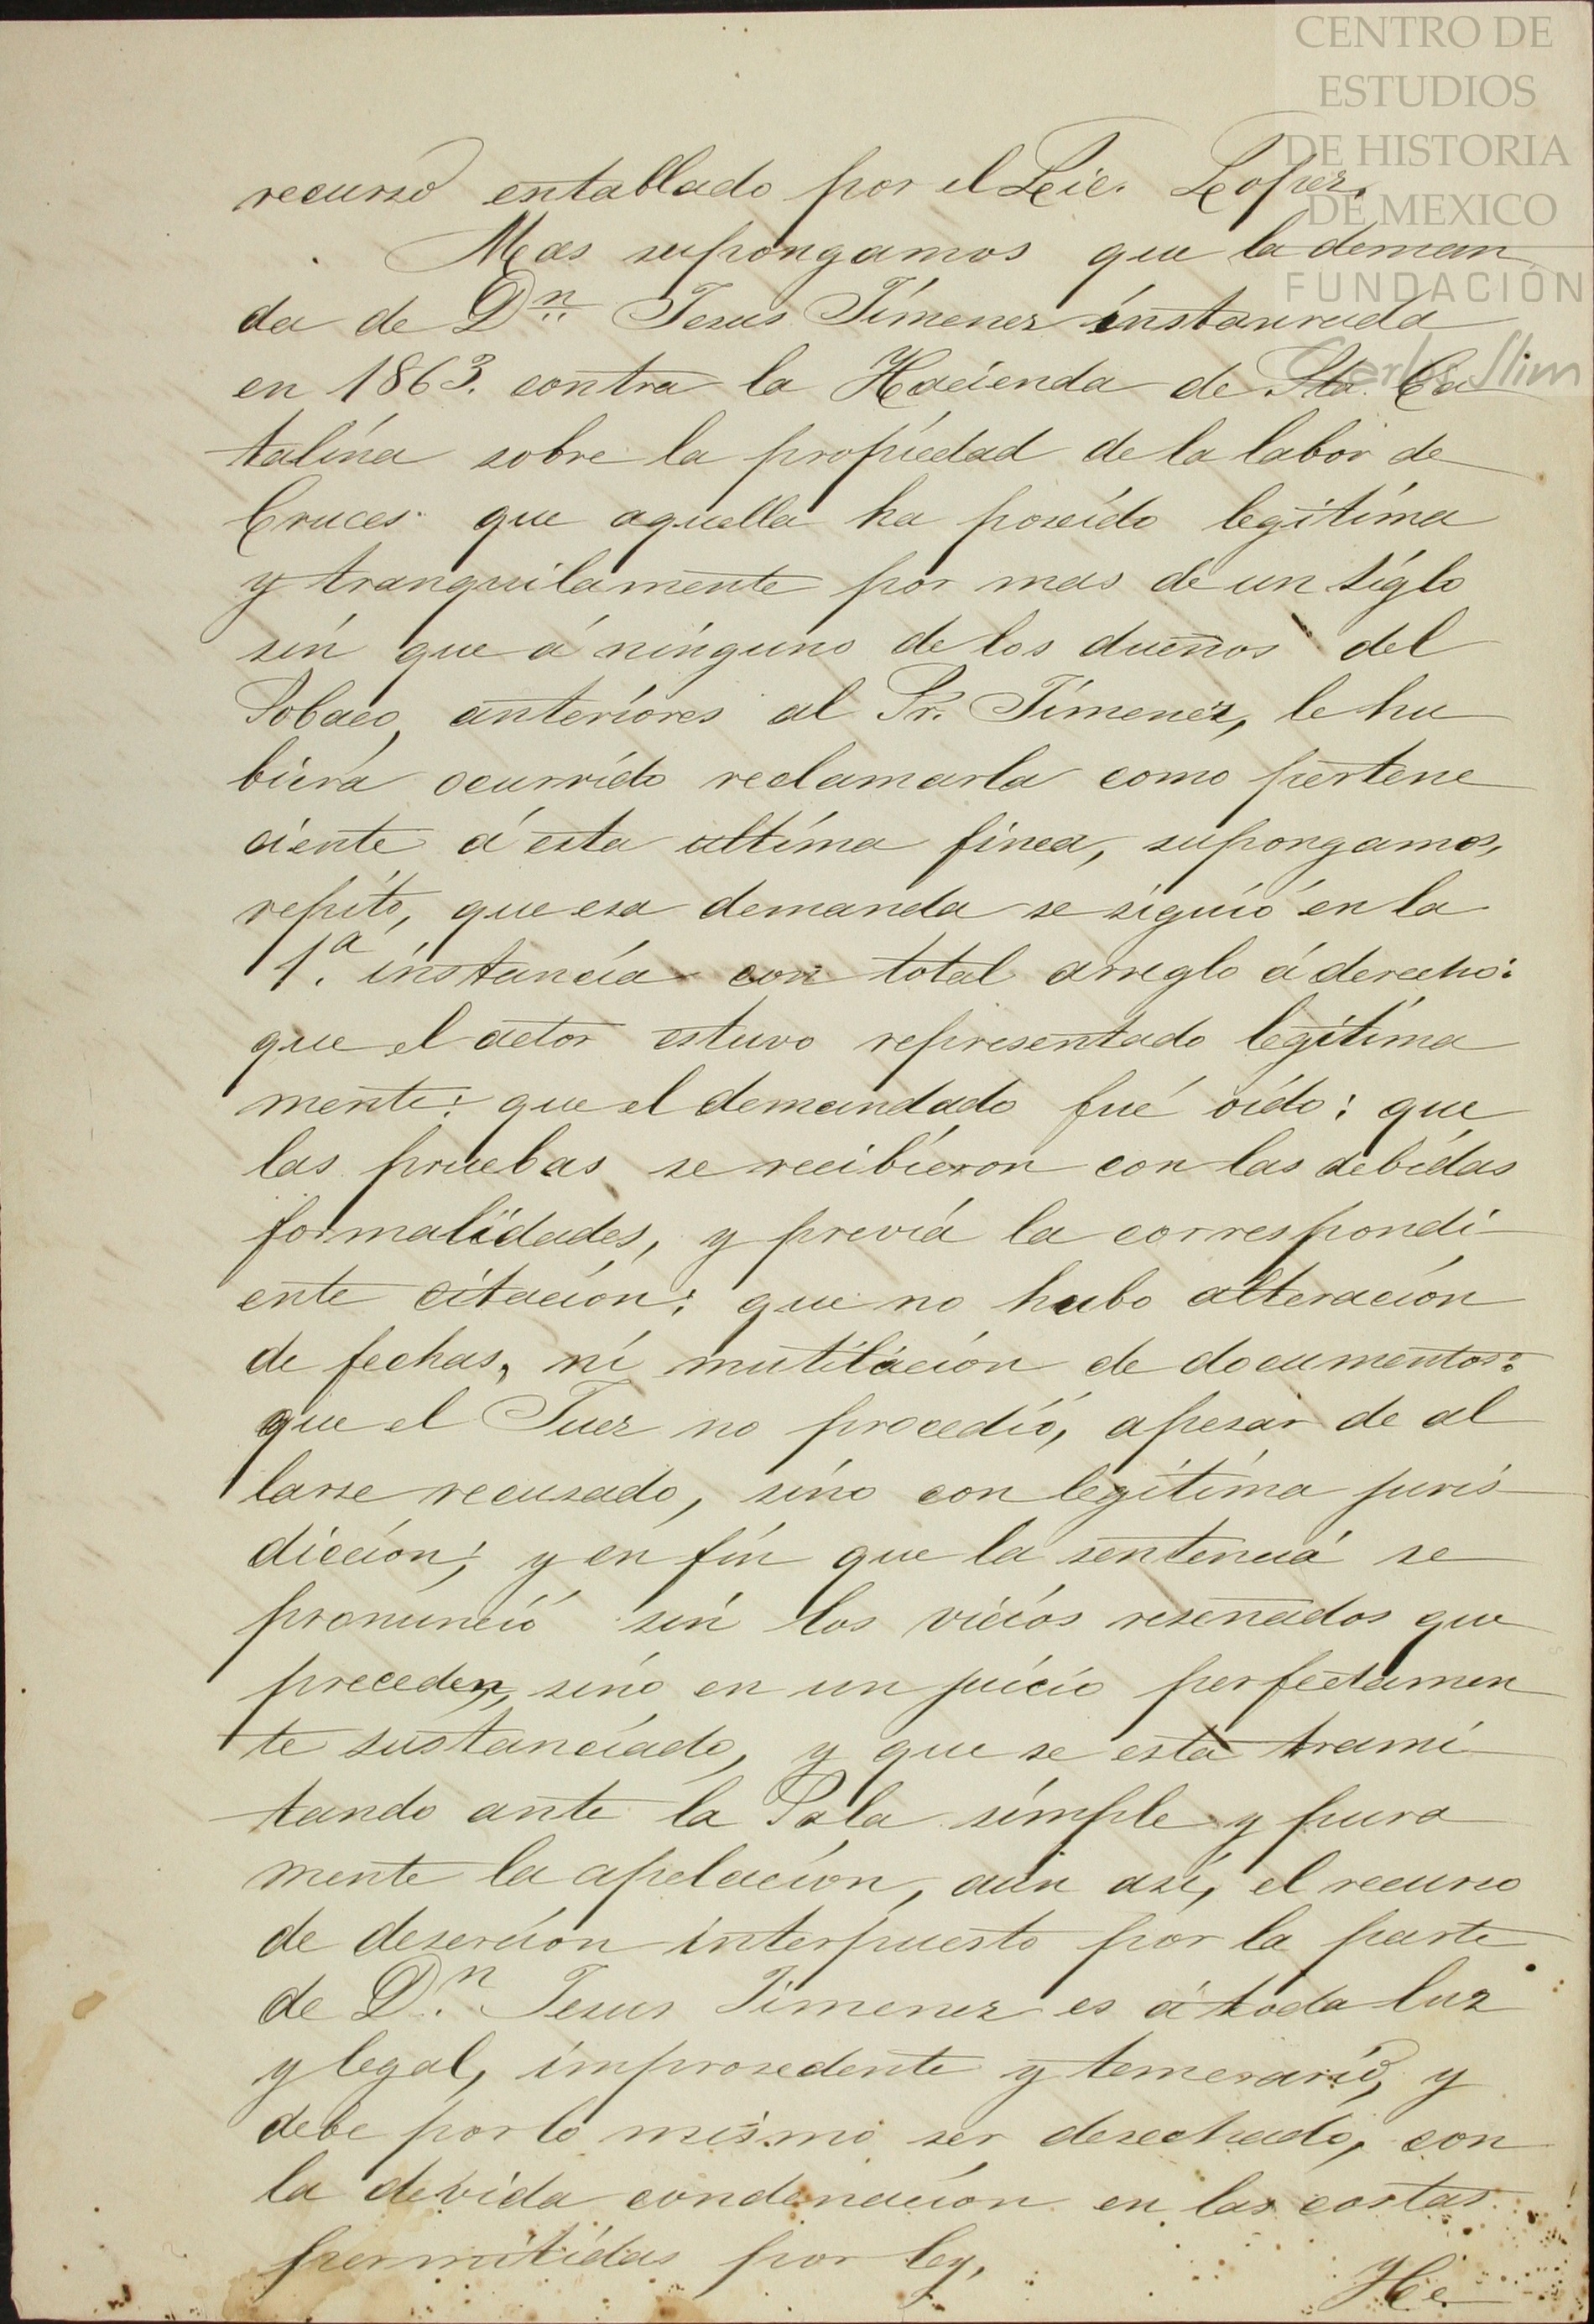 CENTRO DE
ESTUDIOS
DE HISTORIA
DE MEXICO
FUNDACIÓN
Carlos Slim
recurso entablado por el Lic. Lopez.
Mas supongamos que la deman
da de Dn. Jesus Jimenez instaurada
en 1863. contra la Hacienda de Sta. Ca
talina sobre la propiedad de la labor de
Cruces que aquella ha poseido legitima
y tranquilamente por mas de un siglo
sin que á ninguno de los dueños del
Sobaco, anteriores al Sr. Jimenez, le hu
biera ocurrido reclamarla como pertene
ciente á esta ultima finca, supongamos,
repito, que esa demanda se siguió en la
1.a instancia con total arreglo á derecho:
que el actor estuvo representado legitima
mente: que el demandado fué oido: que
las pruebas se recibieron con las debidas
formalidades, y previa la correspondi
ente citacion: que no hubo alteracion
de fechas, ni mutilacion de documentos:
que el Juez no procedió, apesar de al
larse recusado, sino con legitima juris
diccion; y en fin que la sentencia se
pronunció sin los vicios reseñados que
preceden, sino en un juicio perfectamen
te sustanciado, y que se está trami
tando ante la Sala simple y pura
mente la apelacion, aún asi, el recurso
de desercion interpuesto por la parte
de D.n Jesus Jimenez es á toda luz
y legal, improsedente y temerario, y
debe por lo mismo ser desechado, con
la devida condenacion en las costas
permitidas por ley.
He